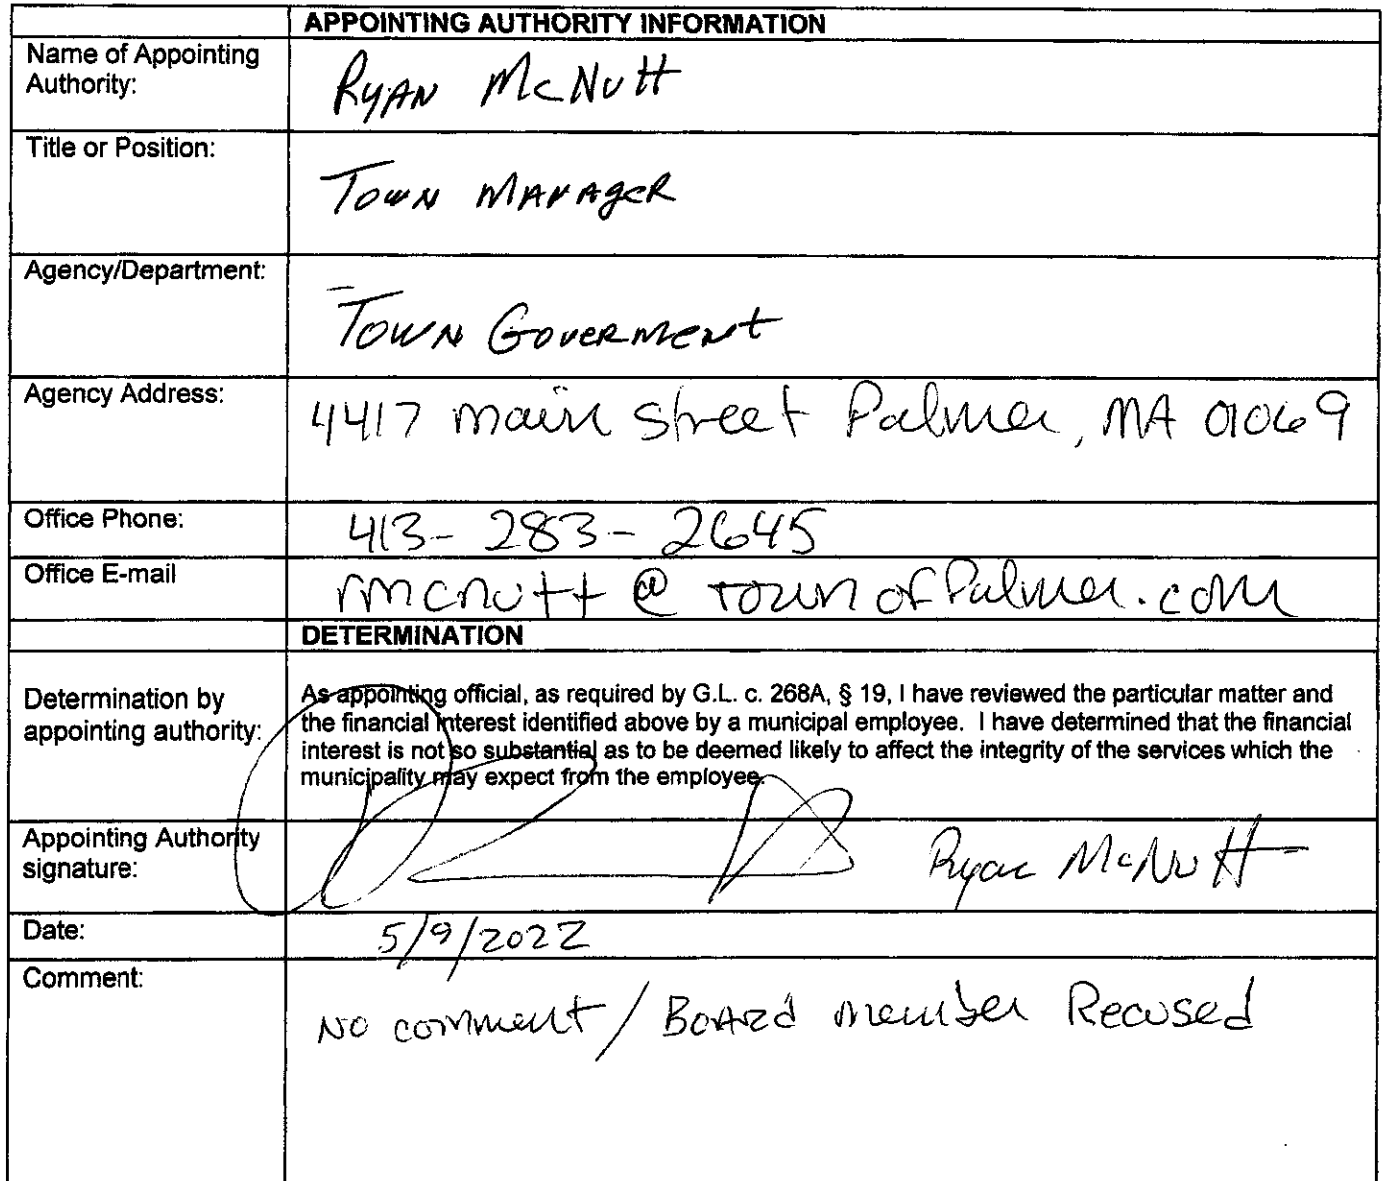 APPOINTING AUTHORITY INFORMATION
Name of Appointing
Authority:
Ryan McNutt
Title or Position:
Town Manager
Agency/Department:
Town Goverment
Agency Address:
4417 main street Palmer, MA 01069
Office Phone:
413-283-2645
Office E-mail
rmcnutt@townofPalmer.com
DETERMINATION
Determination by
appointing authority:
As appointing official, as required by G.L. c. 268A, § 19, I have reviewed the particular matter and
the financial interest identified above by a municipal employee. I have determined that the financial
interest is not so substantial as to be deemed likely to affect the integrity of the services which the
municipality may expect from the employee.
Appointing Authority
signature:
Ryan McNutt
Date:
5/9/2022
Comment:
No comment / Board member Recused